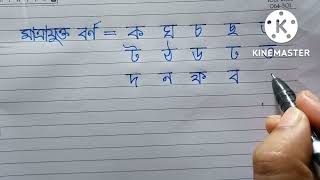 মাত্রাযুক্ত বর্ণ = ক ঘ চ ছ
ট ঠ ড ঢ
দ ন ফ ব
KINEMASTER